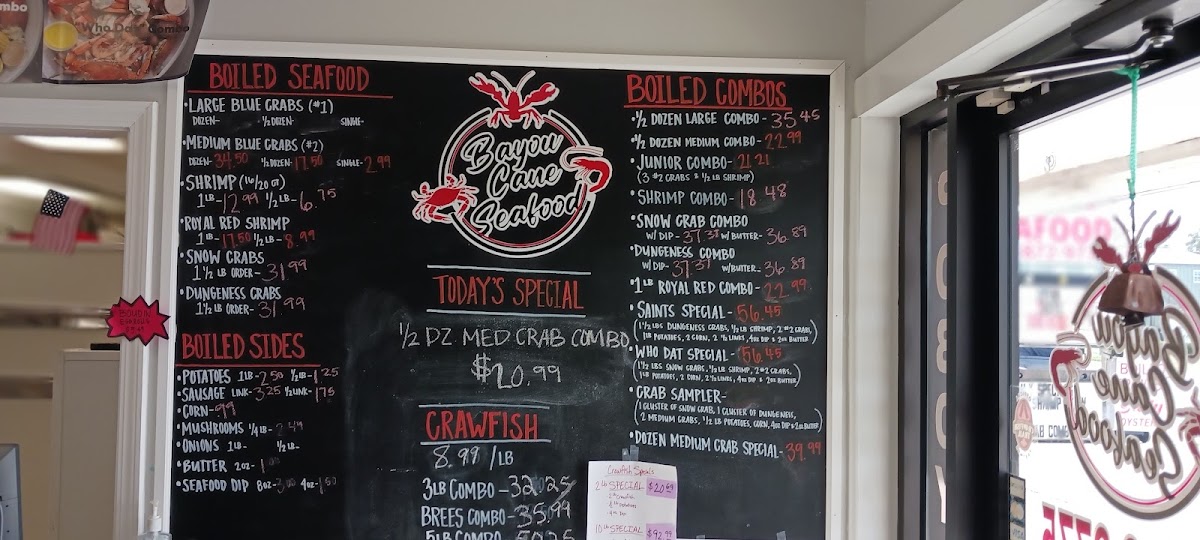 mbo
"Who Dat" Combo
BOILED SEAFOOD
•LARGE BLUE CRABS (#1)
DOZEN- ½ DOZEN- SINGLE-
•MEDIUM BLUE CRABS (#2)
DOZEN-34.50 ½ DOZEN-17.50 SINGLE-2.99
•SHRIMP (16/20 CT)
1 LB-12.99 ½ LB-6.75
•ROYAL RED SHRIMP
1 LB-17.50 ½ LB-8.99
•SNOW CRABS
1 ½ LB ORDER-31.99
•DUNGENESS CRABS
1 ½ LB ORDER-31.99
BOUDIN
BOILED SIDES
•POTATOES 1LB-2.50 ½ LB-1.25
•SAUSAGE LINK-3.25 ½ LINK-1.75
•CORN-.99
•MUSHROOMS ¼ LB-2.49
•ONIONS 1 LB- ½ LB-
•BUTTER 2OZ-
•SEAFOOD DIP 8OZ-3.00 4OZ-1.50
Bayou
Cane
Seafood
TODAY'S SPECIAL
½ DZ MED CRAB COMBO
$20.99
CRAWFISH
8.99/LB
3LB COMBO-32.25
BREES COMBO-35.99
5LB COMBO-
Crawfish Specials
2 lb SPECIAL $20.99
10 lb SPECIAL $92.99
BOILED COMBOS
•½ DOZEN LARGE COMBO-35.45
•½ DOZEN MEDIUM COMBO-22.99
•JUNIOR COMBO-21.21
(3 #2 CRABS & ½ LB SHRIMP)
•SHRIMP COMBO-18.48
•SNOW CRAB COMBO
W/ DIP-37.39 W/ BUTTER-36.89
•DUNGENESS COMBO
W/ DIP-37.39 W/ BUTTER-36.89
•1 LB ROYAL RED COMBO-22.99
•SAINTS SPECIAL-56.45
(1 ½ LBS DUNGENESS CRABS, ½ LB SHRIMP, 2 #2 CRABS,
1LB POTATOES, 2 CORN, 2 ½ LINKS, 4OZ DIP & 2OZ BUTTER)
•WHO DAT SPECIAL-56.45
(1 ½ LBS SNOW CRABS, ½ LB SHRIMP, 2 #2 CRABS,
1LB POTATOES, 2 CORN, 2 ½ LINKS, 4OZ DIP & 2OZ BUTTER)
•CRAB SAMPLER-
(1 CLUSTER OF SNOW CRAB, 1 CLUSTER OF DUNGENESS,
2 MEDIUM CRABS, ½ LB POTATOES, CORN, 4OZ DIP & 2OZ BUTTER)
•DOZEN MEDIUM CRAB SPECIAL-39.99
AFOOD
Bayou
Cane
Seafood